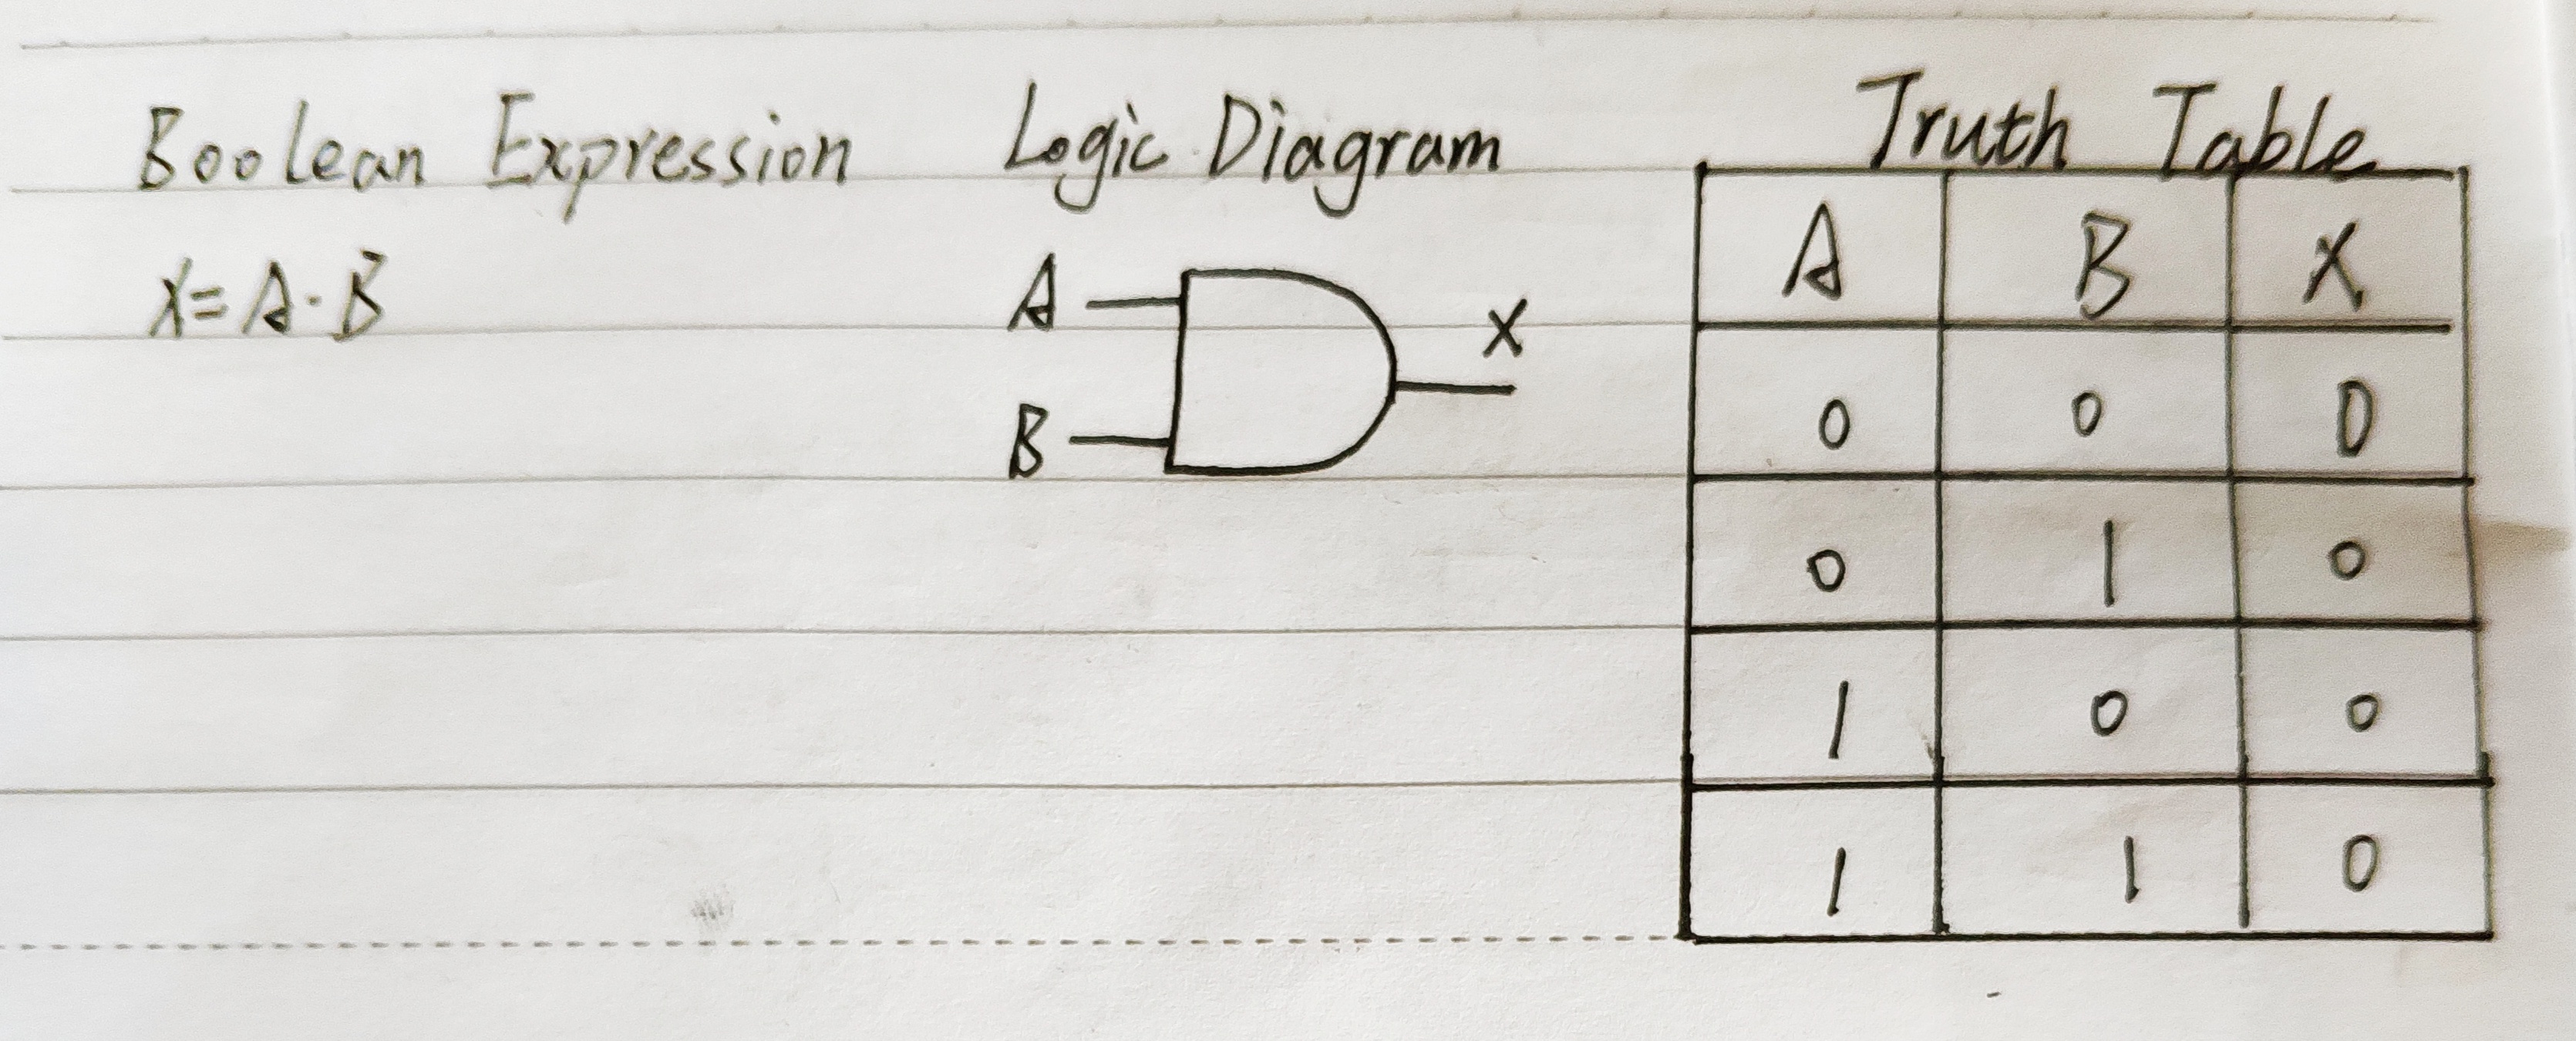 Boolean Expression
X=A·B
Logic Diagram
A
X
B
Truth Table
A B X
0 0 0
0 1 0
1 0 0
1 1 0